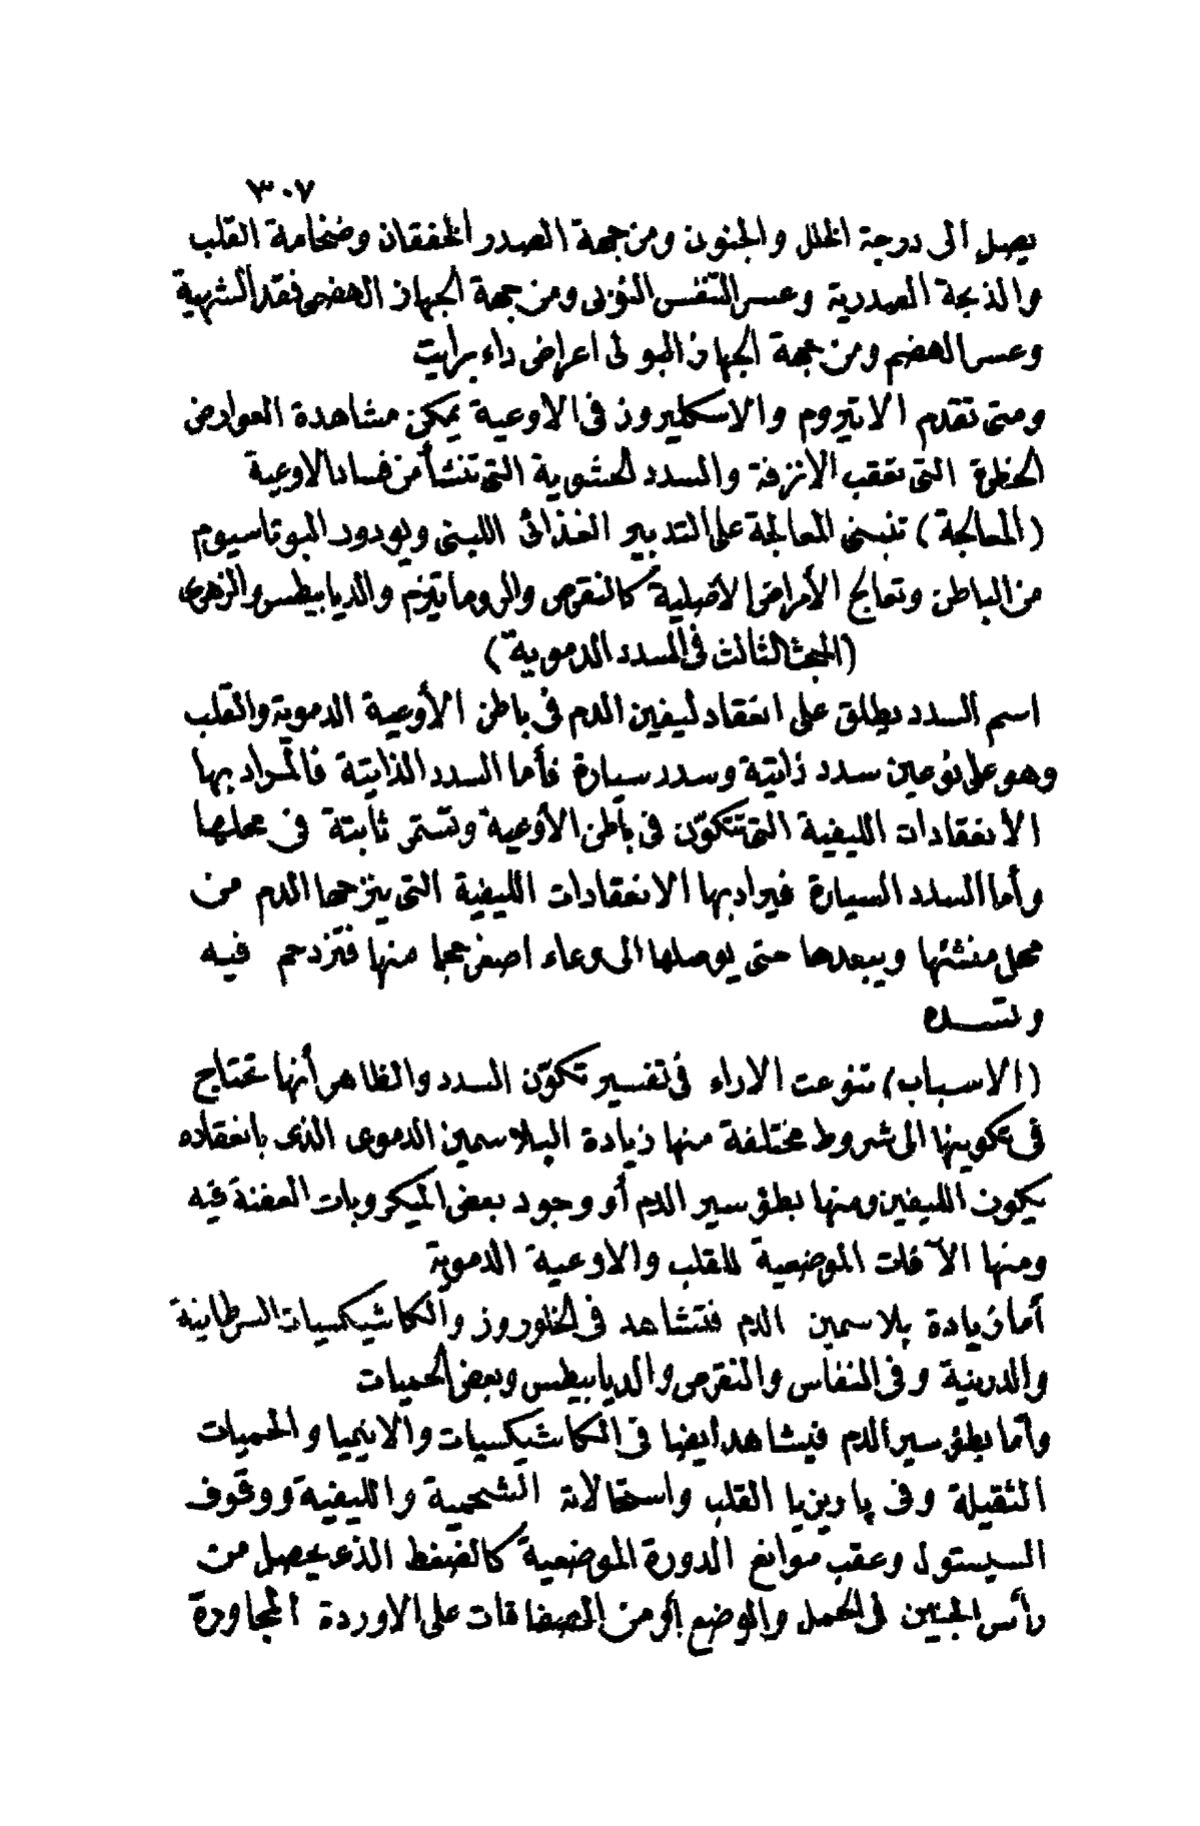 ٣٠٧
يصل الى درجة الخلل والجنون ومن جهة الصدر الخفقان وضخامة القلب
والذبحة الصدرية وعسر التنفس النوبى ومن جهة الجهاز الهضمى فقد الشهية
وعسر الهضم ومن جهة الجهاز البولى اعراض داء برايت
ومتى تقدم الاتيروم والاسكليروز فى الاوعية يمكن مشاهدة العوارض
الخطرة التى تعقب الانزفة والسدد الحشوية التى تنشأ من فساد الاوعية
(المعالجة) تنبنى المعالجة على التدبير الغذائى اللبنى ويودور البوتاسيوم
من الباطن وتعالج الأمراض الاصلية كالنقرص والروماتيزم والديابيطس والزهرى
(المبحث الثالث فى السدد الدموية)
اسم السدد يطلق على انعقاد ليفين الدم فى باطن الأوعية الدموية والقلب
وهو على نوعين سدد ذاتية وسدد سيارة فأما السدد الذاتية فالمراد بها
الأنعقادات الليفية التى تتكوّن فى باطن الأوعية وتستمر ثابتة فى محلها
وأما السدد السيارة فيراد بها الانعقادات الليفية التى يزحزحها الدم من
محل منشئها ويبعدها حتى يوصلها الى وعاء اصغر حجما منها فتزدحم فيه
وتسده
(الاسباب) تنوعت الاراء فى تفسير تكوّن السدد والظاهر أنها تحتاج
فى تكوينها الى شروط مختلفة منها زيادة البلاسمين الدموى الذى بانعقاده
يتكون الليفين ومنها بطؤ سير الدم أو وجود بعض الميكروبات العفنة فيه
ومنها الآفات الموضعية للقلب والاوعية الدموية
أما زيادة پلاسمين الدم فتشاهد فى الخلوروز والكاشيكسيات السرطانية
والدرنية وفى النفاس والنقرص والديابيطس وبعض الحميات
وأما بطؤ سير الدم فيشاهد أيضا فى الكاشيكسيات والانيميا والحميات
الثقيلة وفى پاريزيا القلب واستحالاته الشحمية والليفية ووقوف
السيستول وعقب موانع الدورة الموضعية كالضغط الذى يحصل من
رأس الجنين فى الحمل والوضع أو من الصفاقات على الاوردة المجاورة